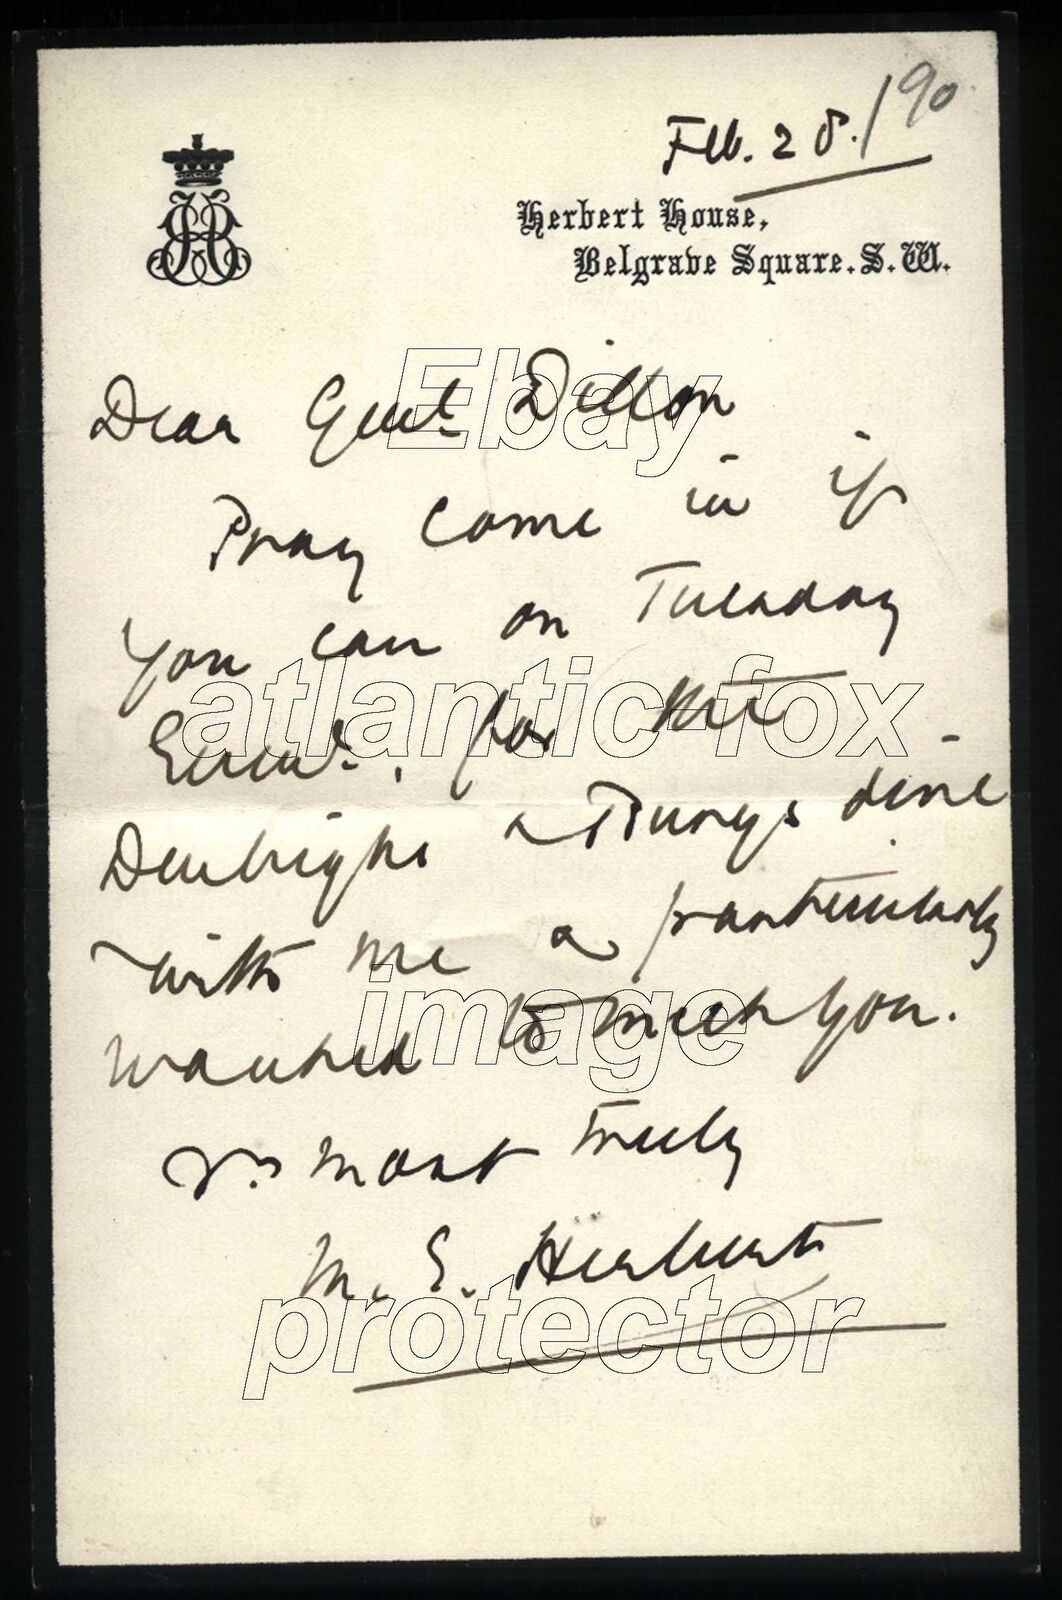 Feb. 28./90
Herbert House,
Belgrave Square. S. W.
Dear Genl. Dillon
Pray come in if
you can on Tuesday
for the
Denbighs &
dine
with me & particularly
wanted to meet you.
Yrs most truly
M. E. Herbert
Ebay
atlantic-fox
image
protector